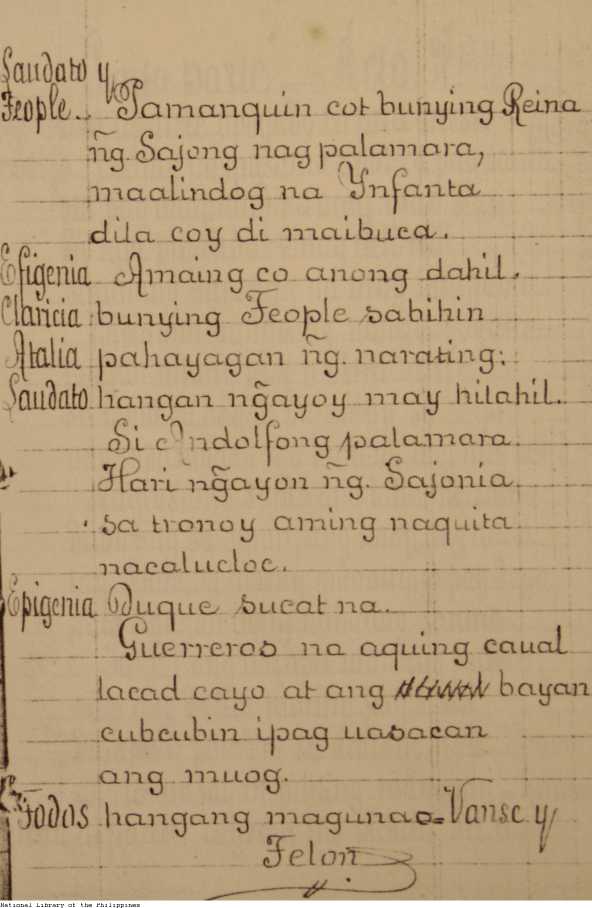 Saudato y
Feople. Pamanquin cot bunying Reina
ñg. Sajong nag palamara,
maalindog na Ynfanta
dila coy di maibuca.
Efigenia Amaing co anong dahil.
Claricia bunying Feople sabihin
Atalia pahayagan ñg. narating:
Saudato hangan ng̃ayoy may hilahil.
Si Andolfong palamara
Hari ng̃ayon ñg. Sajonia
sa tronoy aming naquita
nacalucloc.
Epigenia Duque sucat na.
Guerreros na aquing caual
lacad cayo at ang bayan
cubcubin ipag uasacan
ang muog.
Todos hangang magunao=Vanse y
Felon
National Library of the Philippines